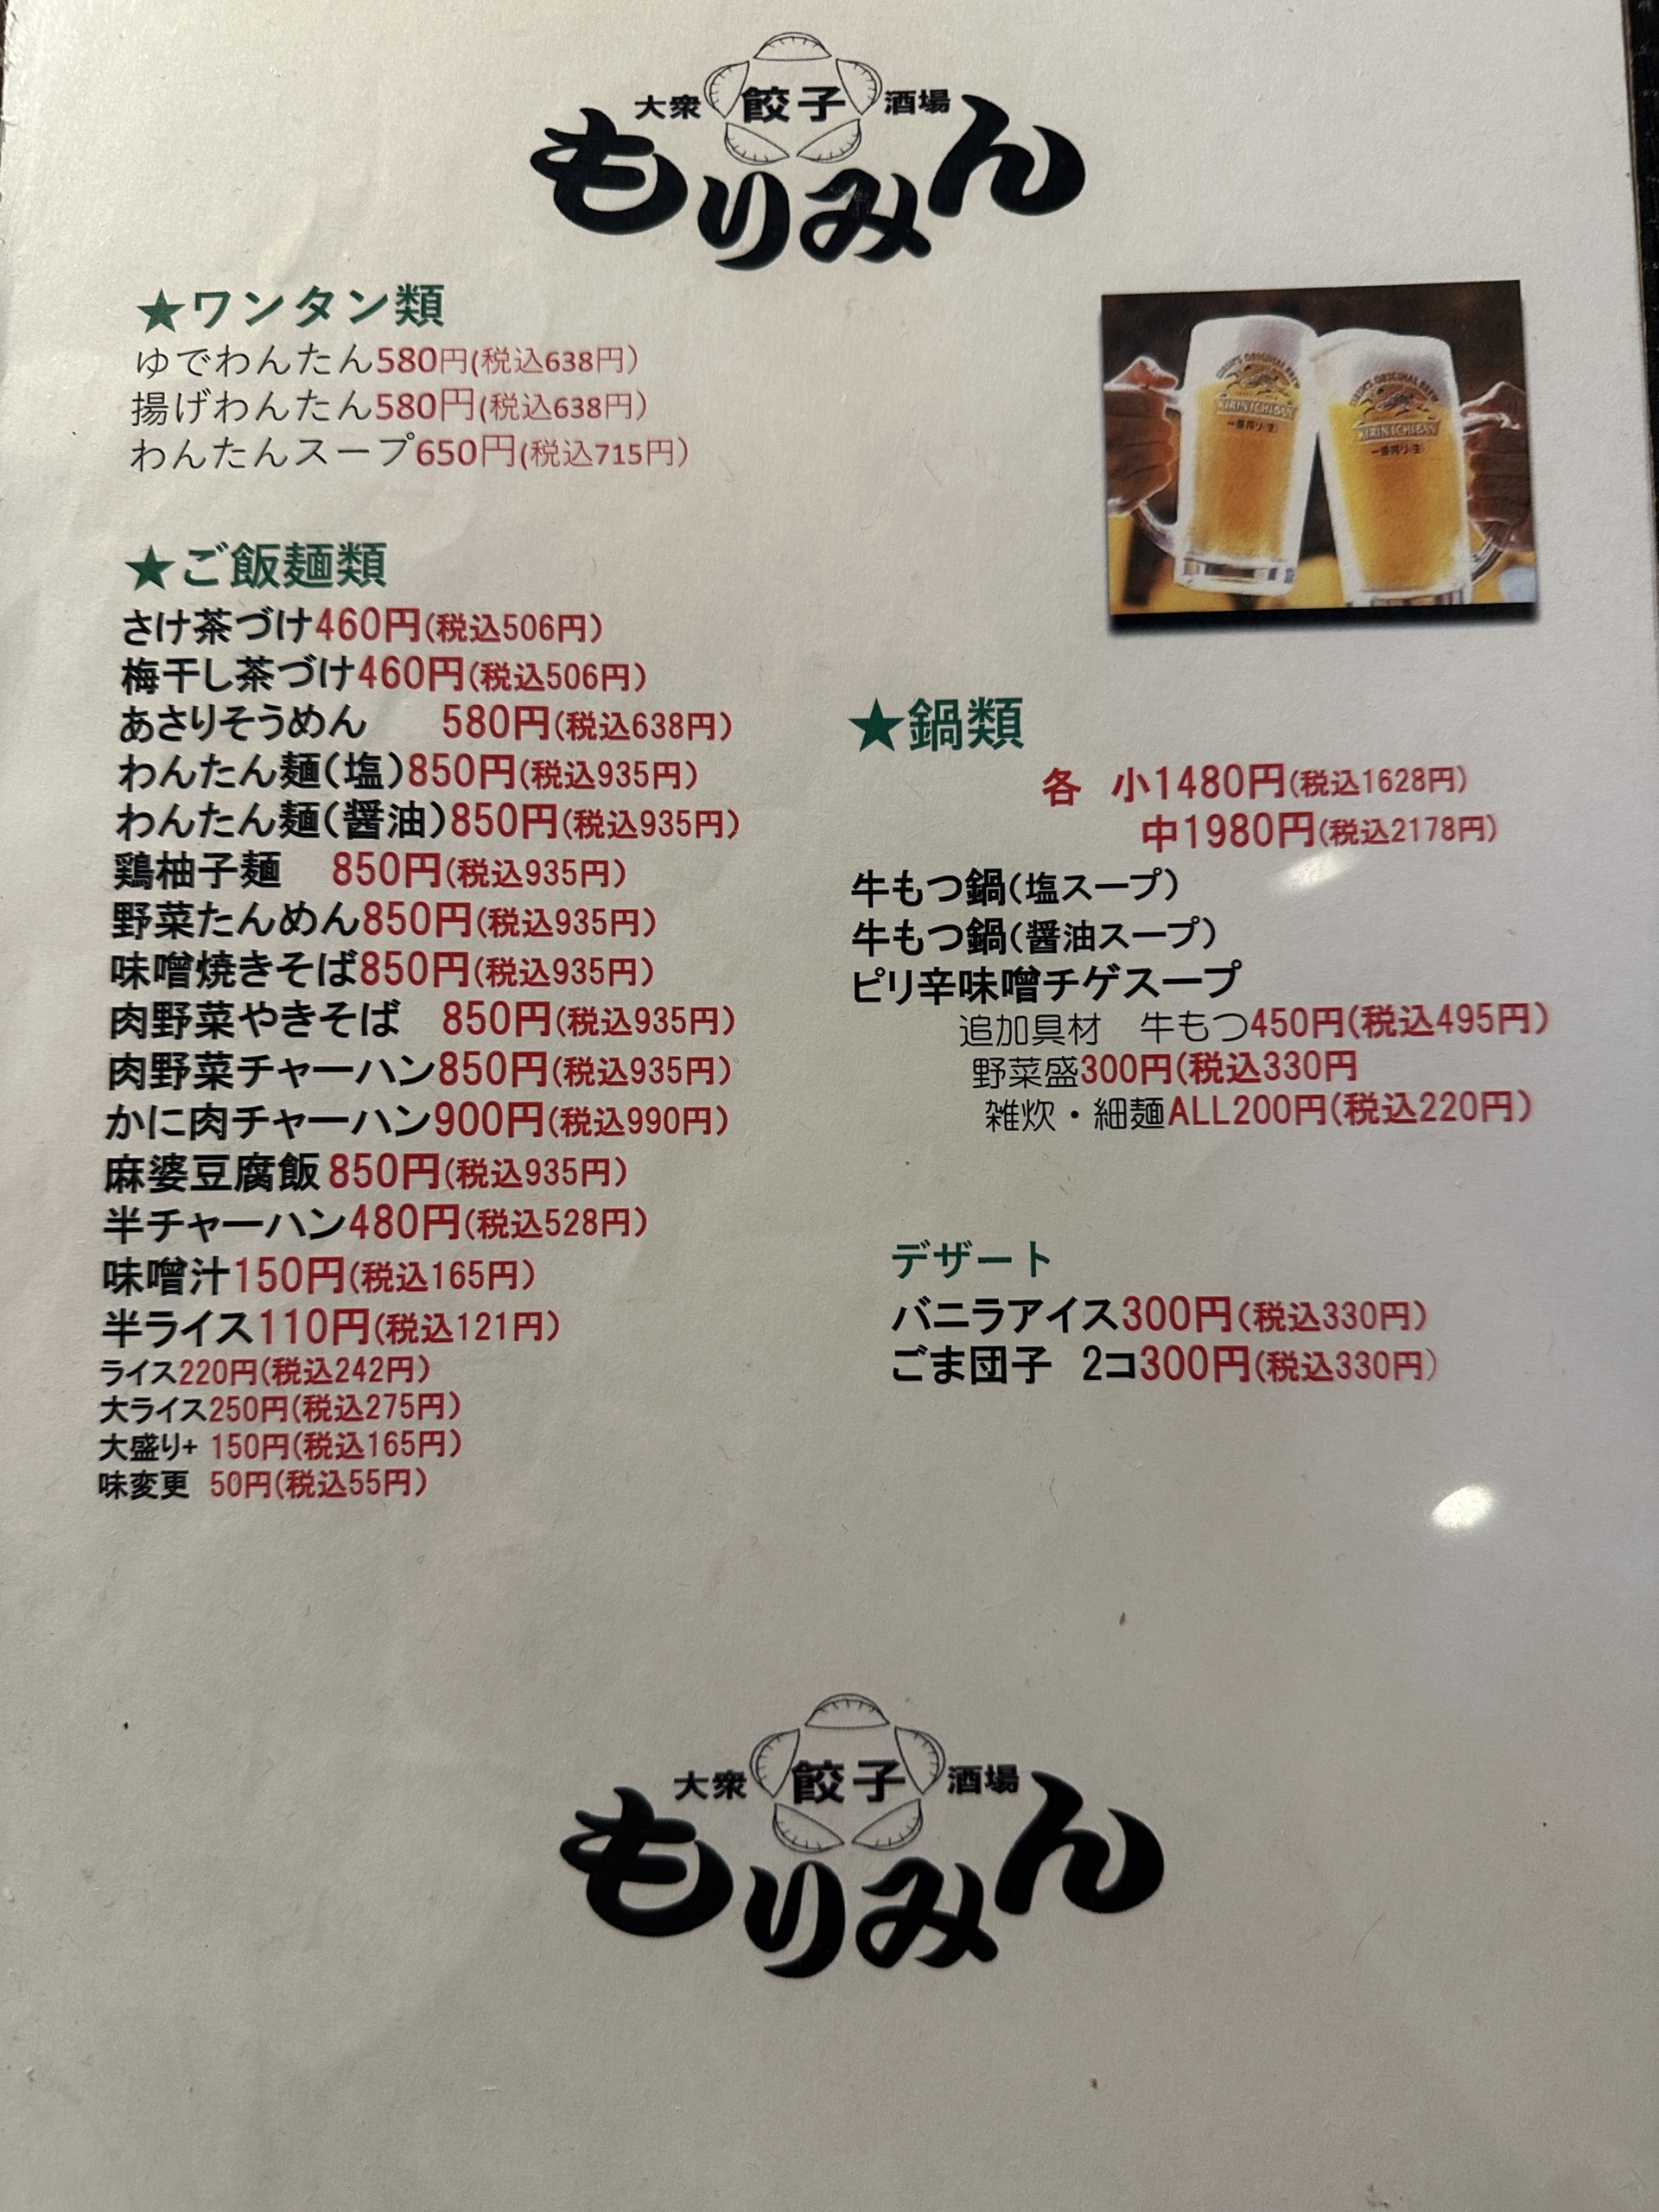 大衆 餃子 酒場
もりみん
★ワンタン類
ゆでわんたん580円(税込638円)
揚げわんたん580円(税込638円)
わんたんスープ650円(税込715円)
★ご飯麺類
さけ茶づけ460円(税込506円)
梅干し茶づけ460円(税込506円)
あさりそうめん 580円(税込638円)
わんたん麺(塩)850円(税込935円)
わんたん麺(醤油)850円(税込935円)
鶏柚子麺 850円(税込935円)
野菜たんめん850円(税込935円)
味噌焼きそば850円(税込935円)
肉野菜やきそば 850円(税込935円)
肉野菜チャーハン850円(税込935円)
かに肉チャーハン900円(税込990円)
麻婆豆腐飯 850円(税込935円)
半チャーハン480円(税込528円)
味噌汁150円(税込165円)
半ライス110円(税込121円)
ライス220円(税込242円)
大ライス250円(税込275円)
大盛り+ 150円(税込165円)
味変更 50円(税込55円)
KIRIN'S ORIGINAL BREW
KIRIN ICHIBAN
一番搾り 生
KIRIN'S ORIGINAL BREW
KIRIN ICHIBAN
一番搾り 生
★鍋類
各 小1480円(税込1628円)
中1980円(税込2178円)
牛もつ鍋(塩スープ)
牛もつ鍋(醤油スープ)
ピリ辛味噌チゲスープ
追加具材 牛もつ450円(税込495円)
野菜盛300円(税込330円
雑炊・細麺ALL200円(税込220円)
デザート
バニラアイス300円(税込330円)
ごま団子 2コ300円(税込330円)
大衆 餃子 酒場
もりみん